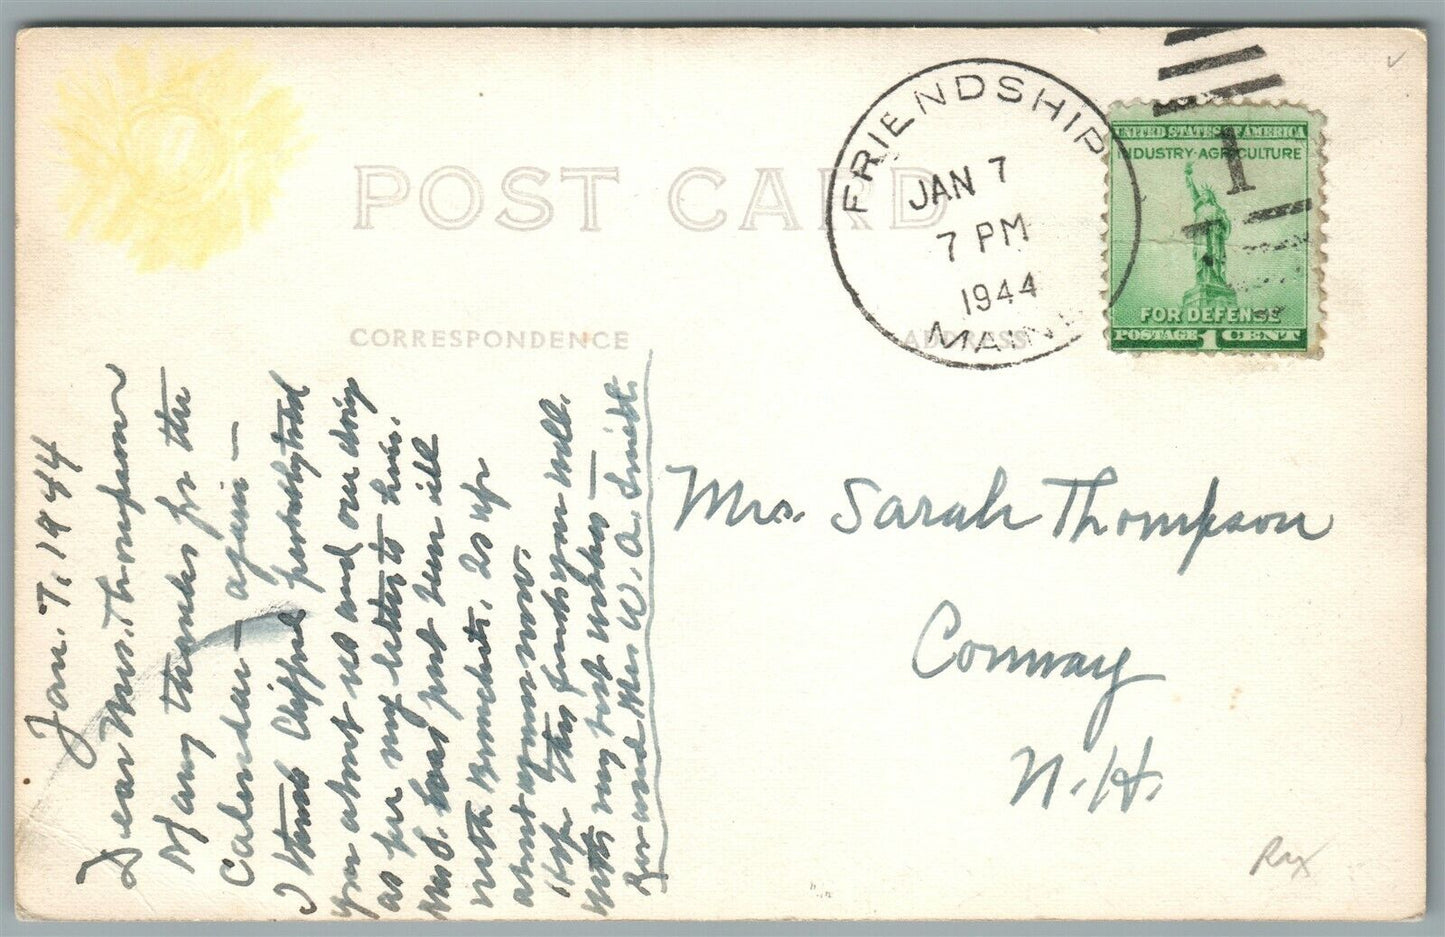 POST CARD
CORRESPONDENCE
ADDRESS
FRIENDSHIP
JAN 7
7 PM
1944
MAINE
UNITED STATES OF AMERICA
INDUSTRY·AGRICULTURE
1
FOR DEFENSE
POSTAGE 1 CENT
Jan. 7, 1944
Dear Mrs. Thompson
Many thanks for the
Calendar — again —
I think Clifford probably told
you about us and our doing
as per my letter to him.
Mrs S. has just been ill
with Bronchitis, is up
about again now.
Hope this finds you well.
With my best wishes —
Rev and Mrs W. A. Smith.
Mrs. Sarah Thompson
Conway
N. H.